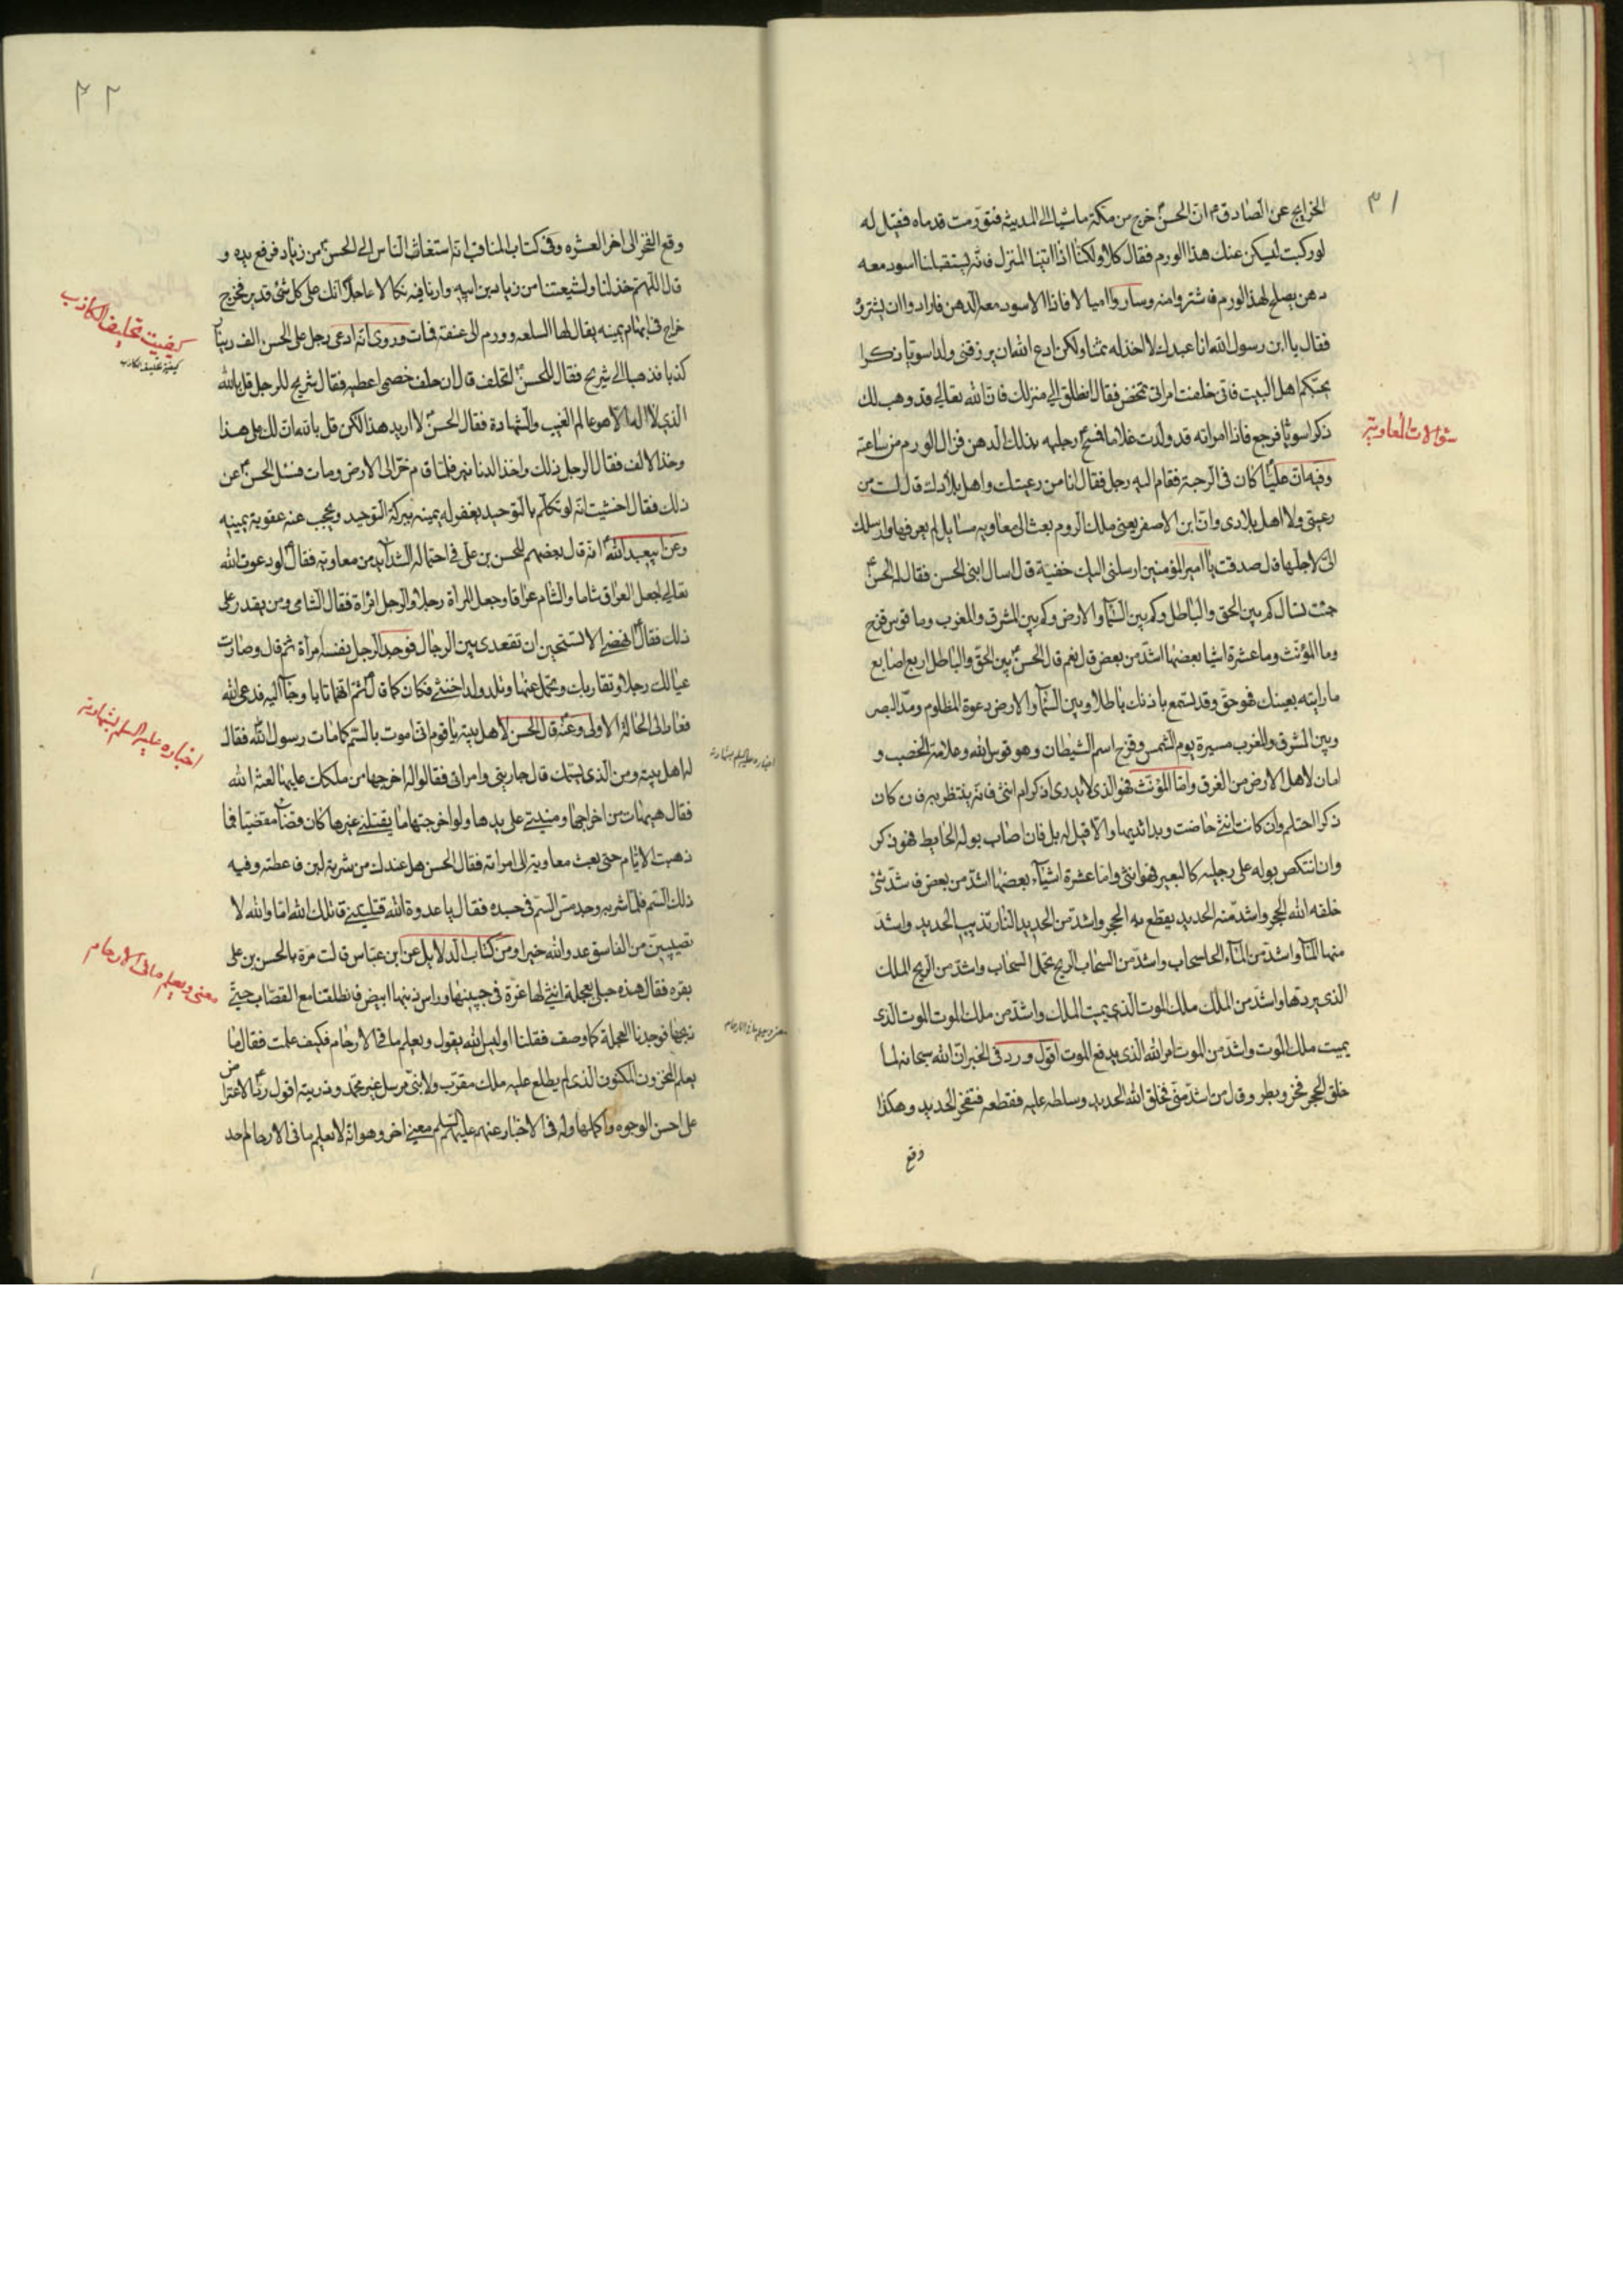 ٣١
الخرايج عن الصادق ع ان الحسن ع خرج من مكة ماشيا الى المدينة فتورمت قدماه فقيل له
لو ركبت ليسكن عنك هذا الورم فقال كلا ولكنا اذا اتينا المنزل فانه يستقبلنا اسود معه
دهن يصلح لهذا الورم فاشتروا منه وساروا اميالا فاذا الاسود معه الدهن فارادوا ان يشتروه
فقال يا ابن رسول الله انا عبدك لا اخذ له ثمنا ولكن ادع الله ان يرزقني ولدا سويا ذكرا
يحبكم اهل البيت فانى خلفت امراتى تمخض فقال انطلق الى منزلك فان الله تعالى قد وهب لك
ذكرا سويا فرجع فاذا امراته قد ولدت غلاما فمسح رجليه بذلك الدهن فزال الورم من ساعته
سؤالات المعاوية
وفيه ان عليا كان فى الرحبة فقام اليه رجل فقال انا من رعيتك واهل بلادك قال لست من
رعيتى ولا اهل بلادى وان ابن الاصفر يعنى ملك الروم بعث الى معاويه مسايل لم يعرفها وارسلك
الى لاجلها قال صدقت يا امير المؤمنين ارسلنى اليك خفية قال اسال ابنى الحسن فقال له الحسن ع
جئت تسال كم بين الحق والباطل وكم بين السمآ والارض وكم بين المشرق والمغرب وما قوس قزح
وما المؤنث وما عشرة اشيا بعضها اشد من بعض قال نعم قال الحسن ع بين الحق والباطل اربع اصابع
ما رايته بعينك فهو حق وقد تسمع باذنك باطلا وبين السمآ والارض دعوة المظلوم ومد البصر
وبين المشرق والمغرب مسيرة يوم الشمس وقزح اسم الشيطان وهو قوس الله وعلامة الخصب و
امان لاهل الارض من الغرق واما المؤنث فهو الذى لا يدرى اذكر ام انثى فانه ينتظر به فان كان
ذكرا احتلم وان كانت انثى حاضت وبدا ثديها والا قيل له بل فان اصاب بوله الحايط فهو ذكر
وان انتكص بوله على رجليه كالبعير فهو انثى واما عشرة اشيآء بعضها اشد من بعض فاشد شئ
خلقه الله الحجر واشد منه الحديد يقطع به الحجر واشد من الحديد النار تذيب الحديد واشد
منها المآء واشد من المآء السحاب واشد من السحاب الريح تحمل السحاب واشد من الريح الملك
الذى يردها واشد من الملك ملك الموت الذى يميت الملك واشد من ملك الموت الموت الذى
يميت ملك الموت واشد من الموت امر الله الذى يدفع الموت اقول ورد فى الخبر ان الله سبحانه لما
خلق الحجر فخر وبطر وقال من اشد منى فخلق الله الحديد وسلطه عليه فقطعه فتفخر الحديد وهكذا
وقع
٣٢
وقع الفخر الى اخر العشره وفى كتاب المناقب انه استغاث الناس الى الحسن ع من زياد فرفع يده و
قال اللهم خذ لنا ولشيعتنا من زياد بن ابيه وارنا فيه نكالا عاجلا انك على كل شئ قدير فخرج
كيفيت تحليف الكاذب
خراج فى ابهام يمينه يقال لها السلعه وورم الى عنقه فمات وروى انه ادعى رجل على الحسن الف دينار
كذبا فذهبا الى شريح فقال للحسن ع اتحلف قال ان حلف خصمى اعطيه فقال شريح للرجل قل بالله
الذى لا اله الا هو عالم الغيب والشهادة فقال الحسن لا اريد هذا لكن قل بالله ان لك على هذا
وخذ الالف فقال الرجل ذلك واخذ الدنانير فلما قام خر الى الارض ومات فسئل الحسن ع عن
ذلك فقال خشيت انه لو تكلم بالتوحيد يغفر له يمينه ببركة التوحيد ويحجب عنه عقوبة يمينه
وعن ابيعبد الله ع انه قال بعضهم للحسن بن على فى احتماله الشدآيد من معاوية فقال ع لو دعوت الله
تعالى لجعل العراق شاما والشام عراقا وجعل المراة رجلا والرجل امراة فقال الشامى ومن يقدر على
ذلك فقال ع انهضى الا تستحين ان تقعدى بين الرجال فوجد الرجل نفسه امرأة ثم قال وصارت
عيالك رجلا وتقاربك وتحمل عنها وتلد ولدا خنثى فكان كما قال ع ثم انهما تابا وجاآ اليه فدعى الله
اخباره عليه السلم بشهادته
فعادا الى الحالة الاولى وعنه قال الحسن لاهل بيته يا قوم انى اموت بالسم كما مات رسول الله فقال
له اهل بيته ومن الذى يسمك قال جاريتى وامراتى فقالوا له اخرجها من ملكك عليها لعنة الله
فقال هيهات من اخراجها ومنيتى على يدها ولو اخرجتها ما يقتلنى غيرها كان قضآء مقضيا فما
ذهبت الايام حتى بعث معاوية الى امراته فقال الحسن هل عندك من شربة لبن فاعطته وفيه
ذلك السم فلما شربه وجد مس السم فى جسده فقال يا عدوة الله قتلتينى قاتلك الله اما والله لا
تصيبين من الفاسق عدو الله خيرا ومن كتاب الدلايل عن ابن عباس قالت مرة بالحسن بن على
معنى ويعلم ما فى الارحام
بقره فقال هذه حبلى بعجلة انثى لها غرة فى جبينها وراس ذنبها ابيض فانطلقنا مع القصاب حتى
ذبحها فوجدنا العجلة كما وصف فقلنا اوليس الله يقول ويعلم ما فى الارحام فكيف علمت فقال ما
يعلم المخزون المكنون الذى لم يطلع عليه ملك مقرب ولا نبى مرسل غير محمد وذريته اقول ربما الاعتراض
على احسن الوجوه واكملها وله فى الاخبار عنهم عليهم السلم معنى اخر وهو انه لا يعلم ما فى الارحام احد